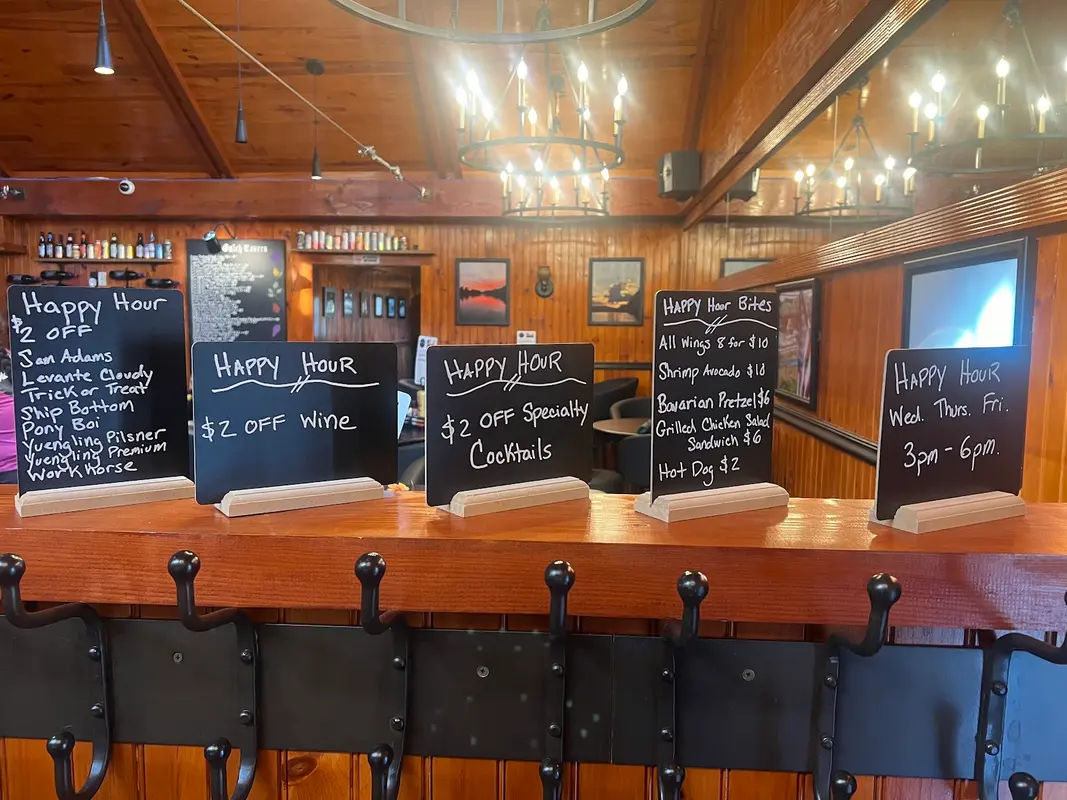 Gulch Tavern
Happy Hour
$2 OFF
Sam Adams
Levante Cloudy
Trick or Treat
Ship Bottom
Pony Boi
Yuengling Pilsner
Yuengling Premium
Workhorse
HAPPY HOUR
$2 OFF Wine
HAPPY HOUR
$2 OFF Specialty
Cocktails
HAPPY Hour Bites
All Wings 8 for $10
Shrimp Avocado $10
Bavarian Pretzel $6
Grilled Chicken Salad
Sandwich $6
Hot Dog $2
HAPPY HOUR
Wed. Thurs. Fri.
3pm - 6pm.